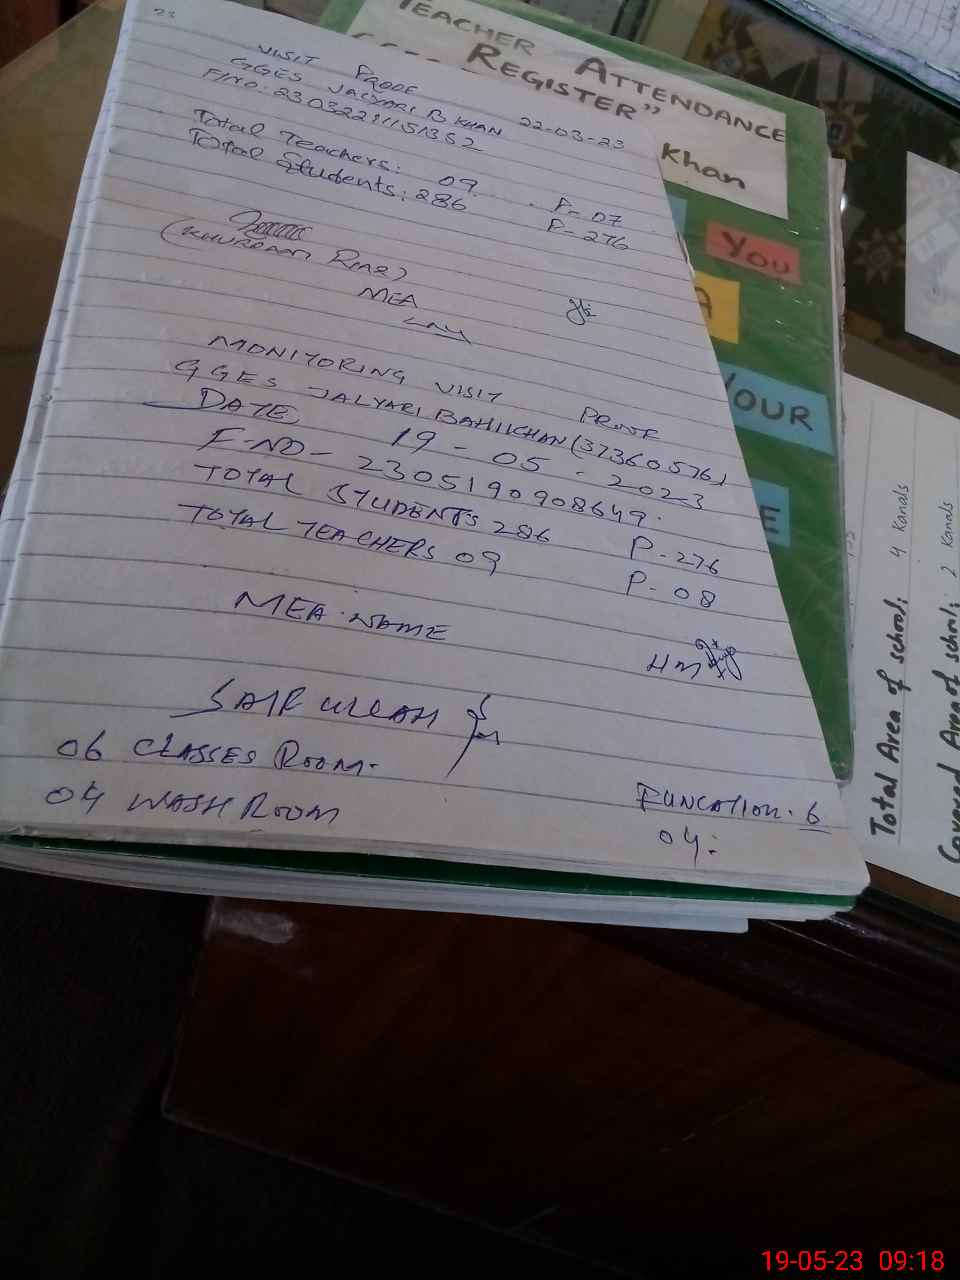 TEACHER ATTENDANCE
REGISTER”
Khan
YOU
A
YOUR
E
VISIT PROOF
GGES JALYARI B KHAN 22-03-23
Total Teachers: 09 P-07
Total Students: 286 P-276
(KHURRAM RIAZ)
MEA
MONITORING VISIT PROOF
GGES JALYARI BAHIKHAN (37360576)
DATE 19-05-2023
F-NO-2305190908649.
TOTAL STUDENTS 286 P-276
TOTAL TEACHERS 09 P-08
MEA NAME
HM
SAIF ULLAH
06 CLASSES ROOM. FUNCATION. 6
04 WASH ROOM 04:
Total Area of school: 4 Kanals
Covered Area of school: 2 Kanals
19-05-23 09:18